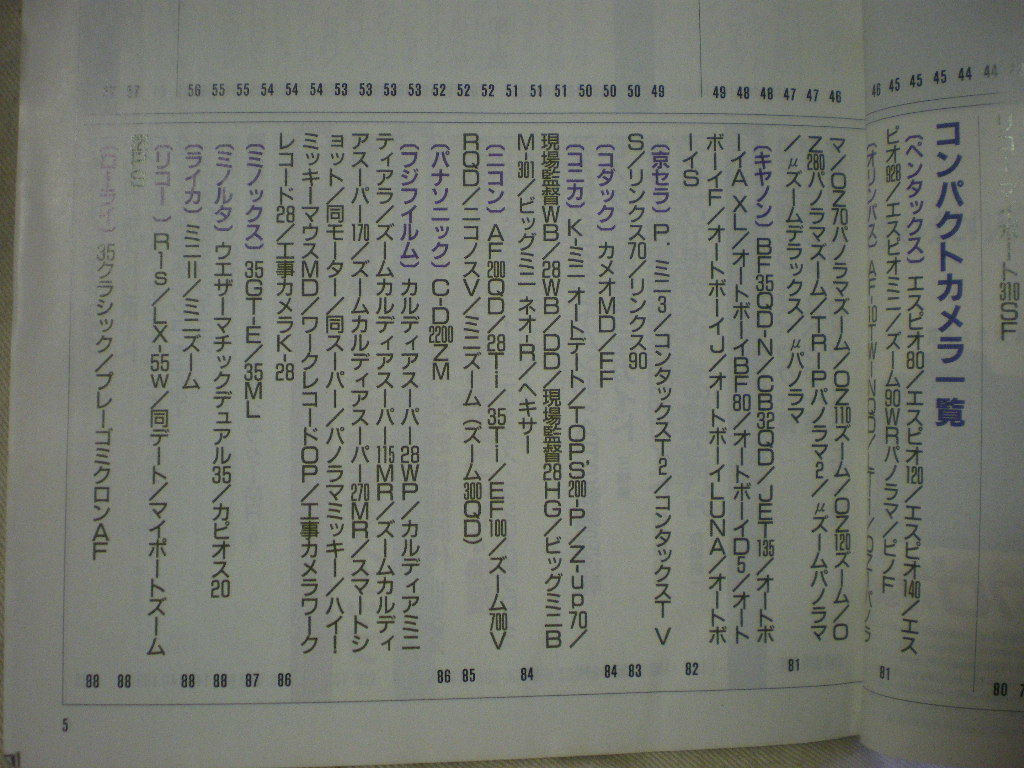 310SF
80
コンパクトカメラ一覧
（ペンタックス）エスピオ80／エスピオ120／エスピオ140／エス
ピオ928／エスピオミニ／ズーム90WRパノラマ／ピノF
81
マ／OZ70パノラマズーム／OZ110ズーム／OZ120ズーム／O
Z280パノラマズーム／TRIPパノラマ2／μズームパノラマ
／μズームデラックス／μパノラマ
81
（キヤノン）BF35QD-N／CB32QD／JET135／オートボ
ーイAXL／オートボーイBF80／オートボーイD5／オート
ボーイF／オートボーイJ／オートボーイLUNA／オートボ
ーイS
82
（京セラ）P.ミニ3／コンタックスT2／コンタックスTV
S／リンクス70／リンクス90
83
（コダック）カメオMD／EF
84
（コニカ）K-ミニ オートデート／TOP'S200-P／Z-up70／
現場監督WB／28WB／DD／現場監督28HG／ビッグミニB
M-301／ビッグミニ ネオ-R／ヘキサー
84
（ニコン）AF200QD／28Ti／35Ti／EF100／ズーム700V
RQD／ニコノスV／ミニズーム（ズーム300QD）
85
（パナソニック）C-D2200ZM
86
（フジフイルム）カルディアスーパー28WP／カルディアミニ
ティアラ／ズームカルディアスーパー115MR／ズームカルディ
アスーパー170／ズームカルディアスーパー270MR／スマートシ
ョット／同モーター／同スーパー／パノラマミッキー／ハイー
ミッキーマウスMD／ワークレコードOP／工事カメラワーク
レコード28／工事カメラK-28
86
（ミノックス）35GT-E／35ML
87
（ミノルタ）ウエザーマチックデュアル35／カピオス20
88
（ライカ）ミニII／ミニズーム
88
（リコー）R1s／LX-55W／同デート／マイポートズーム
88
（ローライ）35クラシック／プレーゴミクロンAF
88
44
44
45
45
45
46
46
47
47
48
48
49
49
50
50
50
51
51
51
52
52
52
53
53
53
53
54
54
54
55
55
56
57
5